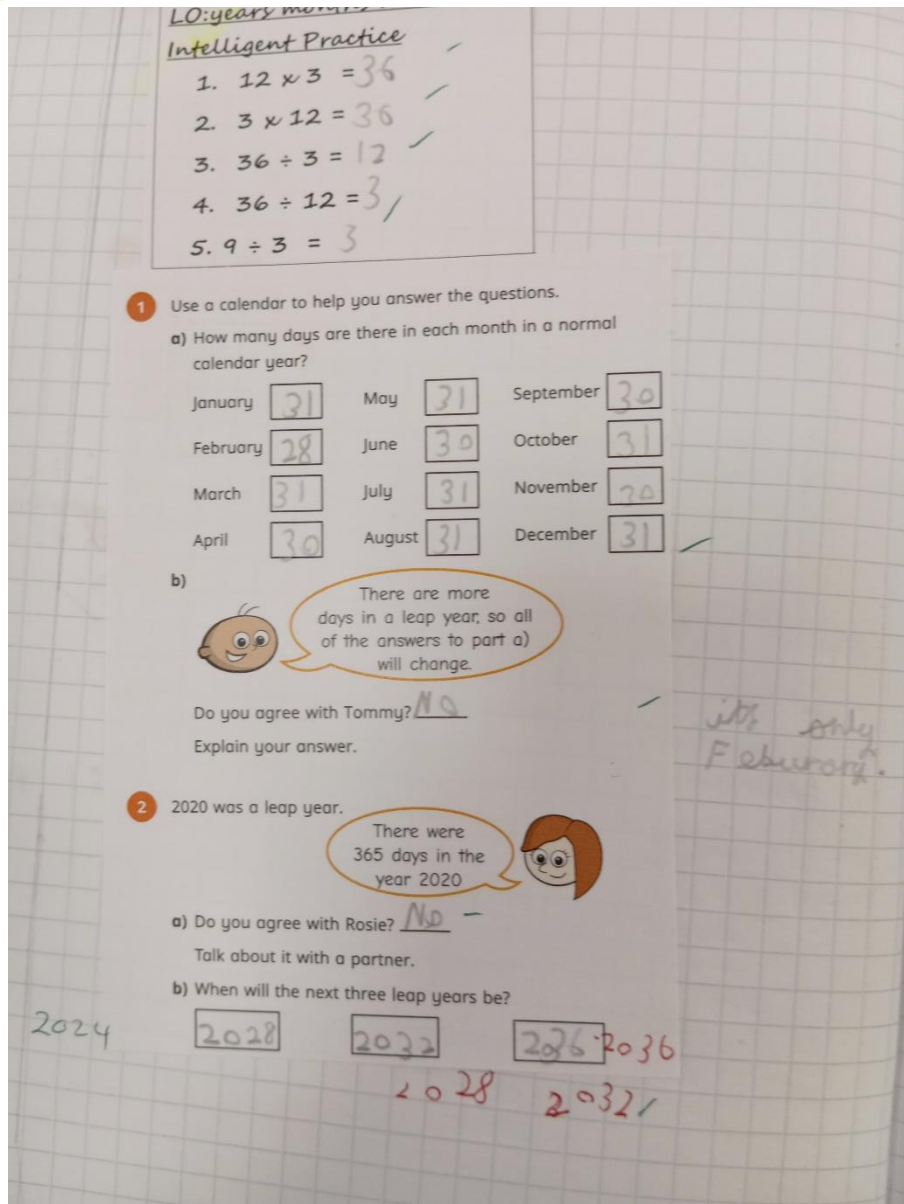 LO:years
Intelligent Practice
1. 12 x 3 = 36
2. 3 x 12 = 36
3. 36 ÷ 3 = 12
4. 36 ÷ 12 = 3
5. 9 ÷ 3 = 3
1 Use a calendar to help you answer the questions.
a) How many days are there in each month in a normal
calendar year?
January 31 May 31 September 30
February 28 June 30 October 31
March 31 July 31 November 30
April 30 August 31 December 31
b)
There are more
days in a leap year, so all
of the answers to part a)
will change.
Do you agree with Tommy? NO
Explain your answer.
its only
Feburary.
2 2020 was a leap year.
There were
365 days in the
year 2020
a) Do you agree with Rosie? No
Talk about it with a partner.
b) When will the next three leap years be?
2024 2028 2032 2036 2036
2028 2032